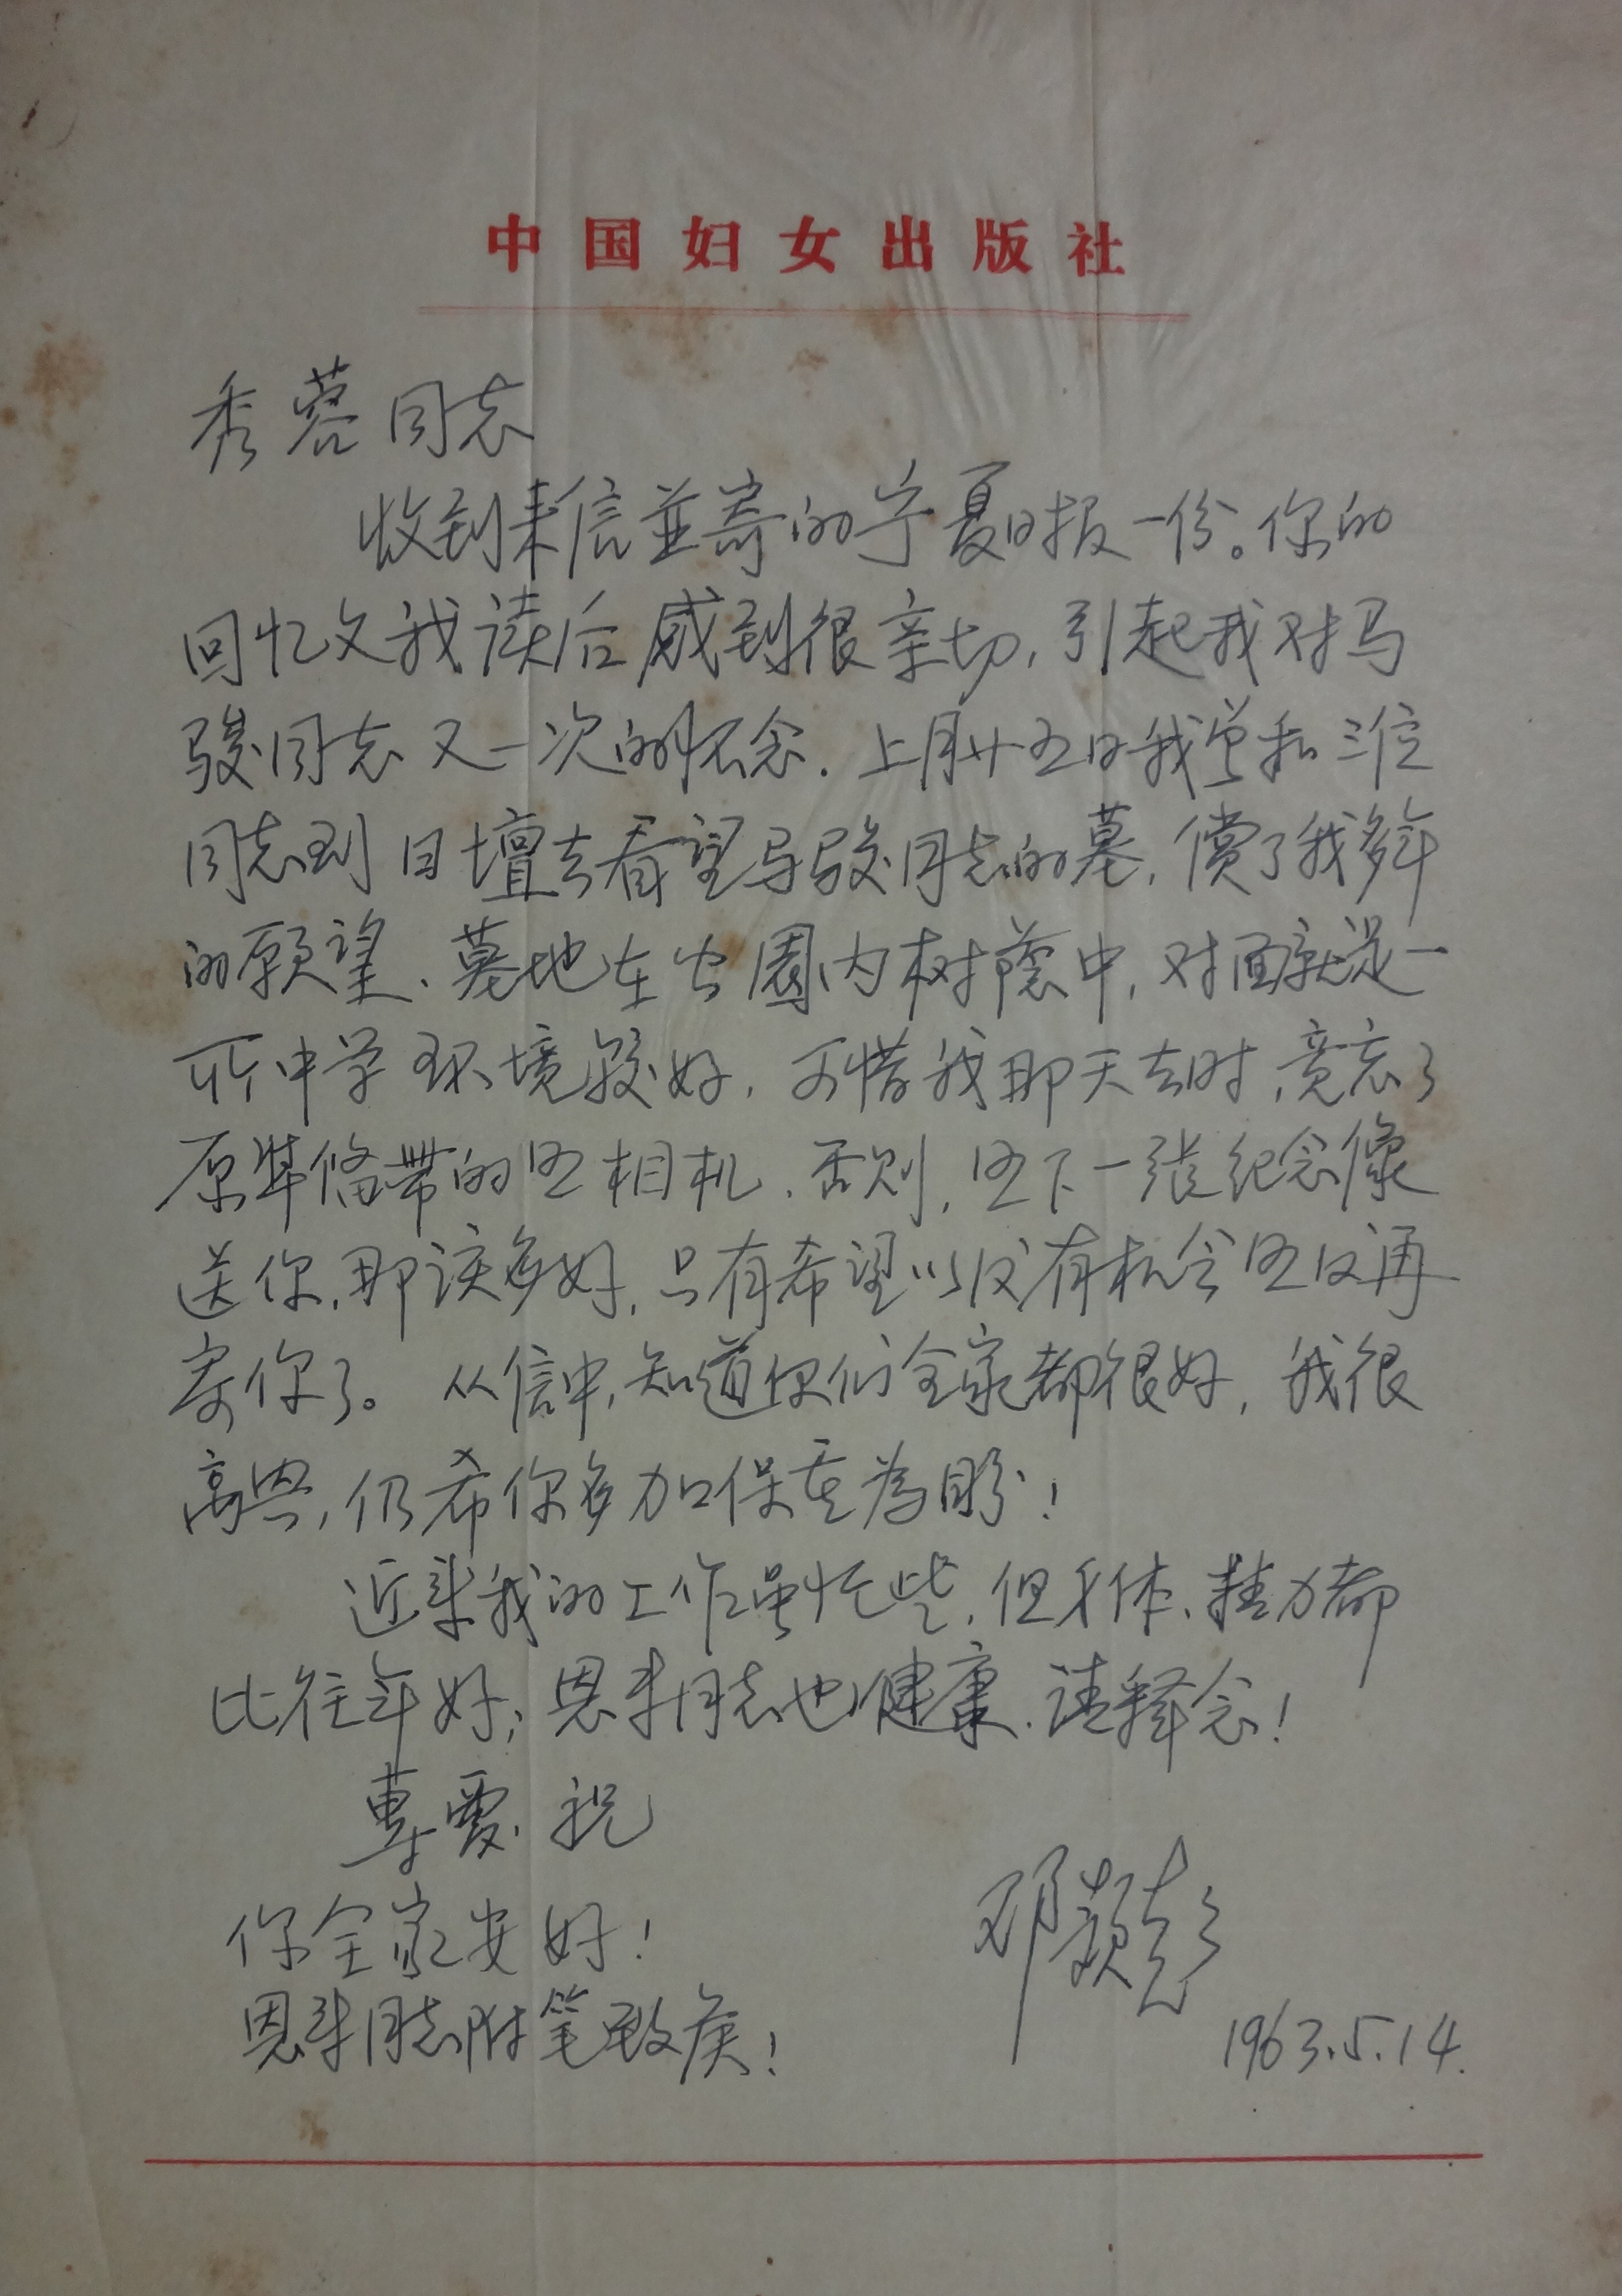 中国妇女出版社
秀蓉同志
收到来信並寄的宁夏日报一份。你的
回忆文我读后感到很亲切，引起我对马
骏同志又一次的怀念．上月廿五日我曾和三位
同志到日壇去看望马骏同志的墓，償了我多年
的願望、墓地在公園内树蔭中，对面就是一
所中学环境较好，可惜我那天去时，竟忘了
原準备带的照相机．否则，照下一张纪念像
送你，那该多好，只有希望以后有机会照后再
寄你了。从信中，知道你们全家都很好，我很
高兴，仍希你多加保重為盼！
近来我的工作虽忙些，但身体、精力都
比往年好；恩来同志也健康．请释念！
專覆．祝
你全家安好！
邓颖超
恩来同志附笔致候！
1963.5.14.